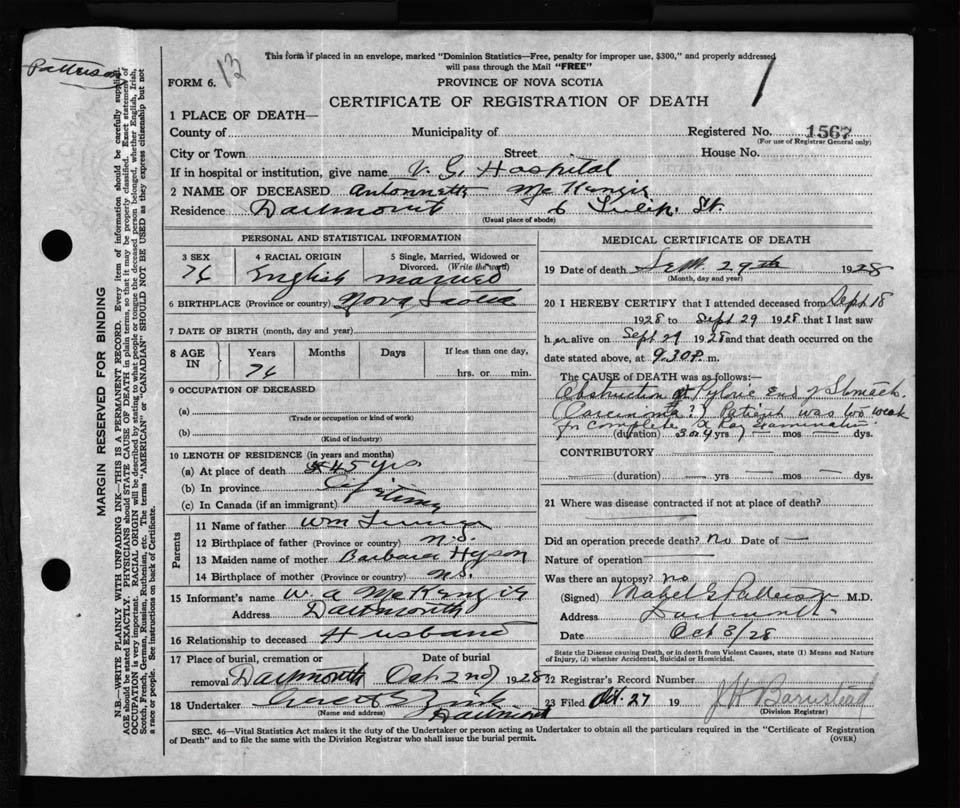 Patterson
13
1
This form if placed in an envelope, marked "Dominion Statistics—Free, penalty for improper use, $300," and properly addressed
will pass through the Mail "FREE"
FORM 6.
PROVINCE OF NOVA SCOTIA
CERTIFICATE OF REGISTRATION OF DEATH
MARGIN RESERVED FOR BINDING
N.B.—WRITE PLAINLY WITH UNFADING INK—THIS IS A PERMANENT RECORD. Every item of information should be carefully supplied.
AGE should be stated EXACTLY. PHYSICIANS should STATE CAUSE OF DEATH in plain terms, so that it may be properly classified. Exact statement of
OCCUPATION is very important. RACIAL ORIGIN will be described by stating to what people or tongue the deceased person belonged, whether English, Irish,
Scotch, French, German, Russian, Ruthenian, etc. The terms "AMERICAN" or "CANADIAN" SHOULD NOT BE USED as they express citizenship but not
a race or people. See instructions on back of Certificate.
1 PLACE OF DEATH—
County of Municipality of Registered No. 1567
(For use of Registrar General only)
City or Town Street House No.
If in hospital or institution, give name V. G. Hospital
2 NAME OF DECEASED McKenzie
Residence Dartmouth 6 Tulip St.
(Usual place of abode)
PERSONAL AND STATISTICAL INFORMATION
3 SEX 4 RACIAL ORIGIN 5 Single, Married, Widowed or
Divorced. (Write the word)
English married
6 BIRTHPLACE (Province or country) Nova Scotia
7 DATE OF BIRTH (month, day and year)
8 AGE IN Years Months Days If less than one day,
74 hrs. or min.
9 OCCUPATION OF DECEASED
(a)
(Trade or occupation or kind of work)
(b)
(Kind of industry)
10 LENGTH OF RESIDENCE (in years and months)
(a) At place of death 45 yrs
(b) In province Lifetime
(c) In Canada (if an immigrant)
Parents
11 Name of father Wm
12 Birthplace of father (Province or country) N.S.
13 Maiden name of mother Barbara Hyson
14 Birthplace of mother (Province or country) N.S.
15 Informant's name W A McKenzie
Address Dartmouth
16 Relationship to deceased Husband
17 Place of burial, cremation or Date of burial
removal Dartmouth Oct. 2nd 1928
18 Undertaker
(Name and address) Dartmouth
MEDICAL CERTIFICATE OF DEATH
19 Date of death Sept. 29th 1928
(Month, day and year)
20 I HEREBY CERTIFY that I attended deceased from Sept 18
1928 to Sept 29 1928 that I last saw
her alive on Sept 29 1928 and that death occurred on the
date stated above, at 9.30 P. m.
The CAUSE OF DEATH was as follows:—
Obstruction at Pyloric End of Stomach.
(Carcinoma?) Patient was too weak
for complete X Ray Examination
(duration) 3 or 4 yrs mos dys.
CONTRIBUTORY
(duration) yrs mos dys.
21 Where was disease contracted if not at place of death?
Did an operation precede death? No Date of —
Nature of operation
Was there an autopsy? no
(Signed) Mabel G Patterson M.D.
Address Dartmouth
Date Oct 3/28
State the Disease causing Death, or in death from Violent Causes, state (1) Means and Nature
of Injury, (2) whether Accidental, Suicidal or Homicidal.
22 Registrar's Record Number
23 Filed Oct. 27 19 J H Barnstead
(Division Registrar)
SEC. 46—Vital Statistics Act makes it the duty of the Undertaker or person acting as Undertaker to obtain all the particulars required in the "Certificate of Registration
of Death" and to file the same with the Division Registrar who shall issue the burial permit. (OVER)